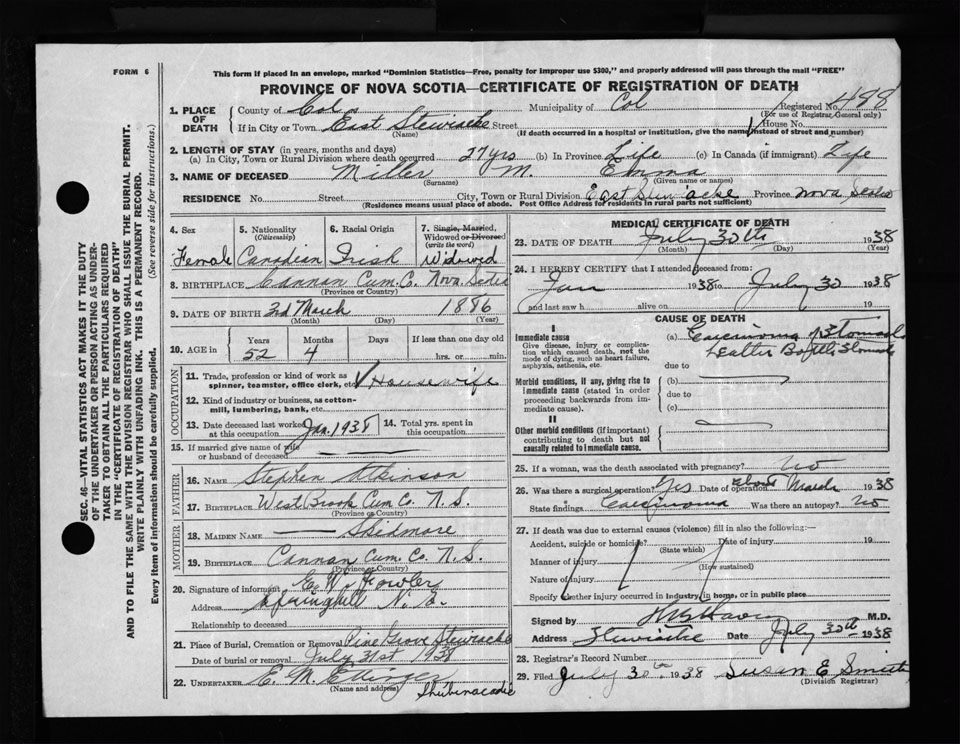 FORM 6
This form if placed in an envelope, marked "Dominion Statistics—Free, penalty for improper use $300," and properly addressed will pass through the mail "FREE"
PROVINCE OF NOVA SCOTIA—CERTIFICATE OF REGISTRATION OF DEATH
1. PLACE OF DEATH County of Col Municipality of Col Registered No. 488
(For use of Registrar General only)
If in City or Town East Stewiacke Street House No.
(Name) (If death occurred in a hospital or institution, give the name instead of street and number)
2. LENGTH OF STAY (in years, months and days)
(a) In City, Town or Rural Division where death occurred 27 yrs (b) In Province Life (c) In Canada (if immigrant) Life
3. NAME OF DECEASED Miller M. Emma
(Surname) (Given name or names)
RESIDENCE No. Street City, Town or Rural Division East Stewiacke Province Nova Scotia
(Residence means usual place of abode. Post Office Address for residents in rural parts not sufficient)
4. Sex
Female
5. Nationality
(Citizenship)
Canadian
6. Racial Origin
Irish
7. Single, Married,
Widowed or Divorced
(write the word)
Widowed
8. BIRTHPLACE Cannan Cum. C. Nova Scotia
(Province or Country)
9. DATE OF BIRTH 3rd March 1886
(Month) (Day) (Year)
10. AGE in Years Months Days If less than one day old
52 4 hrs. or min.
OCCUPATION
11. Trade, profession or kind of work as
spinner, teamster, office clerk, etc. Housewife
12. Kind of industry or business, as cotton-
mill, lumbering, bank, etc.
13. Date deceased last worked
at this occupation Jan. 1938
14. Total yrs. spent in
this occupation
15. If married give name of wife
or husband of deceased
FATHER
16. NAME Stephen Atkinson
17. BIRTHPLACE West Brook Cum Co. N.S.
(Province or Country)
MOTHER
18. MAIDEN NAME Skidmore
19. BIRTHPLACE Cannan Cum. Co. N.S.
(Province or Country)
20. Signature of informant E. W. Fowler
Address Springhill N.S.
Relationship to deceased
21. Place of Burial, Cremation or Removal Pine Grove Stewiacke
Date of burial or removal July 31st 1938
22. UNDERTAKER E. M. Ettinger
(Name and address) Shubenacadie
MEDICAL CERTIFICATE OF DEATH
23. DATE OF DEATH July 30th 1938
(Month) (Day) (Year)
24. I HEREBY CERTIFY that I attended deceased from:
Jan 1938 to July 30 1938
and last saw h alive on 19
CAUSE OF DEATH
I
Immediate cause
Give disease, injury or complica-
tion which caused death, not the
mode of dying, such as heart failure,
asphyxia, asthenia, etc.
(a) Carcinoma of Stomach
due to
Morbid conditions, if any, giving rise to
immediate cause (stated in order
proceeding backwards from im-
mediate cause).
(b)
due to
(c)
II
Other morbid conditions (if important)
contributing to death but not
causally related to immediate cause.
25. If a woman, was the death associated with pregnancy? No
26. Was there a surgical operation? Yes Date of operation about March 1938
State findings Carcinoma Was there an autopsy? No
27. If death was due to external causes (violence) fill in also the following:—
Accident, suicide or homicide? Date of injury 19
(State which)
Manner of injury
(How sustained)
Nature of injury
Specify whether injury occurred in industry, in home, or in public place
Signed by M.D.
Address Stewiacke Date July 30th 1938
28. Registrar's Record Number
29. Filed July 30th 1938 Susan E Smith
(Division Registrar)
SEC. 46—VITAL STATISTICS ACT MAKES IT THE DUTY
OF THE UNDERTAKER OR PERSON ACTING AS UNDER-
TAKER TO OBTAIN ALL THE PARTICULARS REQUIRED
IN THE "CERTIFICATE OF REGISTRATION OF DEATH"
AND TO FILE THE SAME WITH THE DIVISION REGISTRAR WHO SHALL ISSUE THE BURIAL PERMIT.
WRITE PLAINLY WITH UNFADING INK. THIS IS A PERMANENT RECORD.
Every item of information should be carefully supplied. (See reverse side for instructions.)